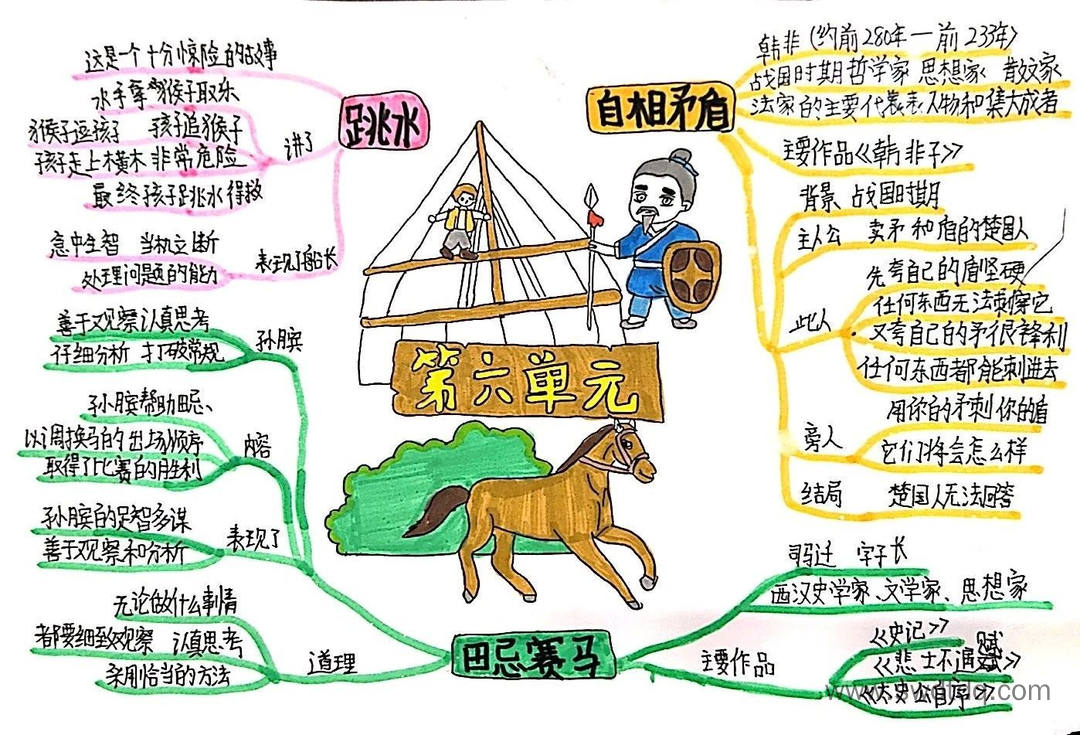 第六单元
跳水
这是一个十分惊险的故事
讲了
水手拿猴子取乐
猴子逗孩子 孩子追猴子
孩子走上横木 非常危险
最终孩子跳水得救
表现了船长
急中生智 当机立断
处理问题的能力
自相矛盾
韩非(约前280年—前233年)
战国时期哲学家 思想家 散文家
法家的主要代表人物和集大成者
主要作品《韩非子》
背景 战国时期
主人公 卖矛和盾的楚国人
此人
先夸自己的盾坚硬
任何东西无法刺穿它
又夸自己的矛很锋利
任何东西都能刺进去
旁人
用你的矛刺你的盾
它们将会怎么样
结局 楚国人无法回答
田忌赛马
孙膑
善于观察认真思考
仔细分析 打破常规
内容
孙膑帮助田忌、
以调换马的出场顺序
取得了比赛的胜利
表现了
孙膑的足智多谋
善于观察和分析
道理
无论做什么事情
都要细致观察 认真思考
采用恰当的方法
司马迁 字子长
西汉史学家、文学家、思想家
主要作品
《史记》
《悲士不遇赋》
《太史公自序》